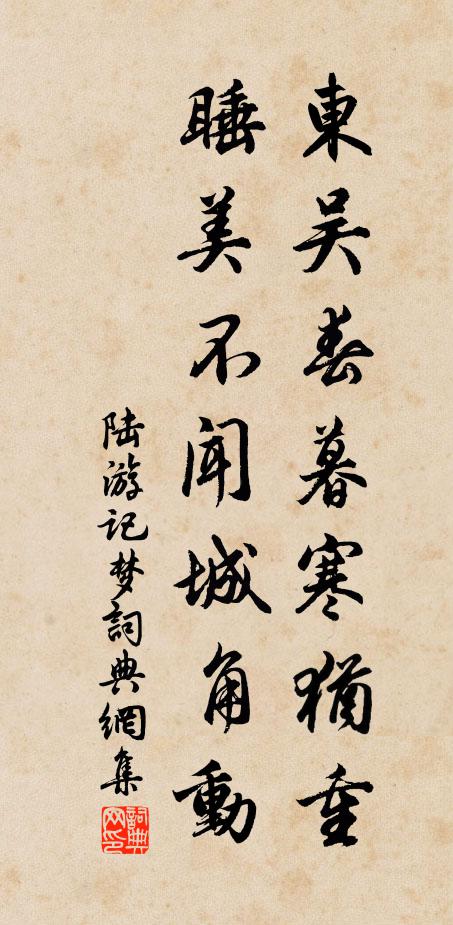 東吴春暮寒猶重
睡美不聞城角動
陆游记梦詞典網集
詞典網印